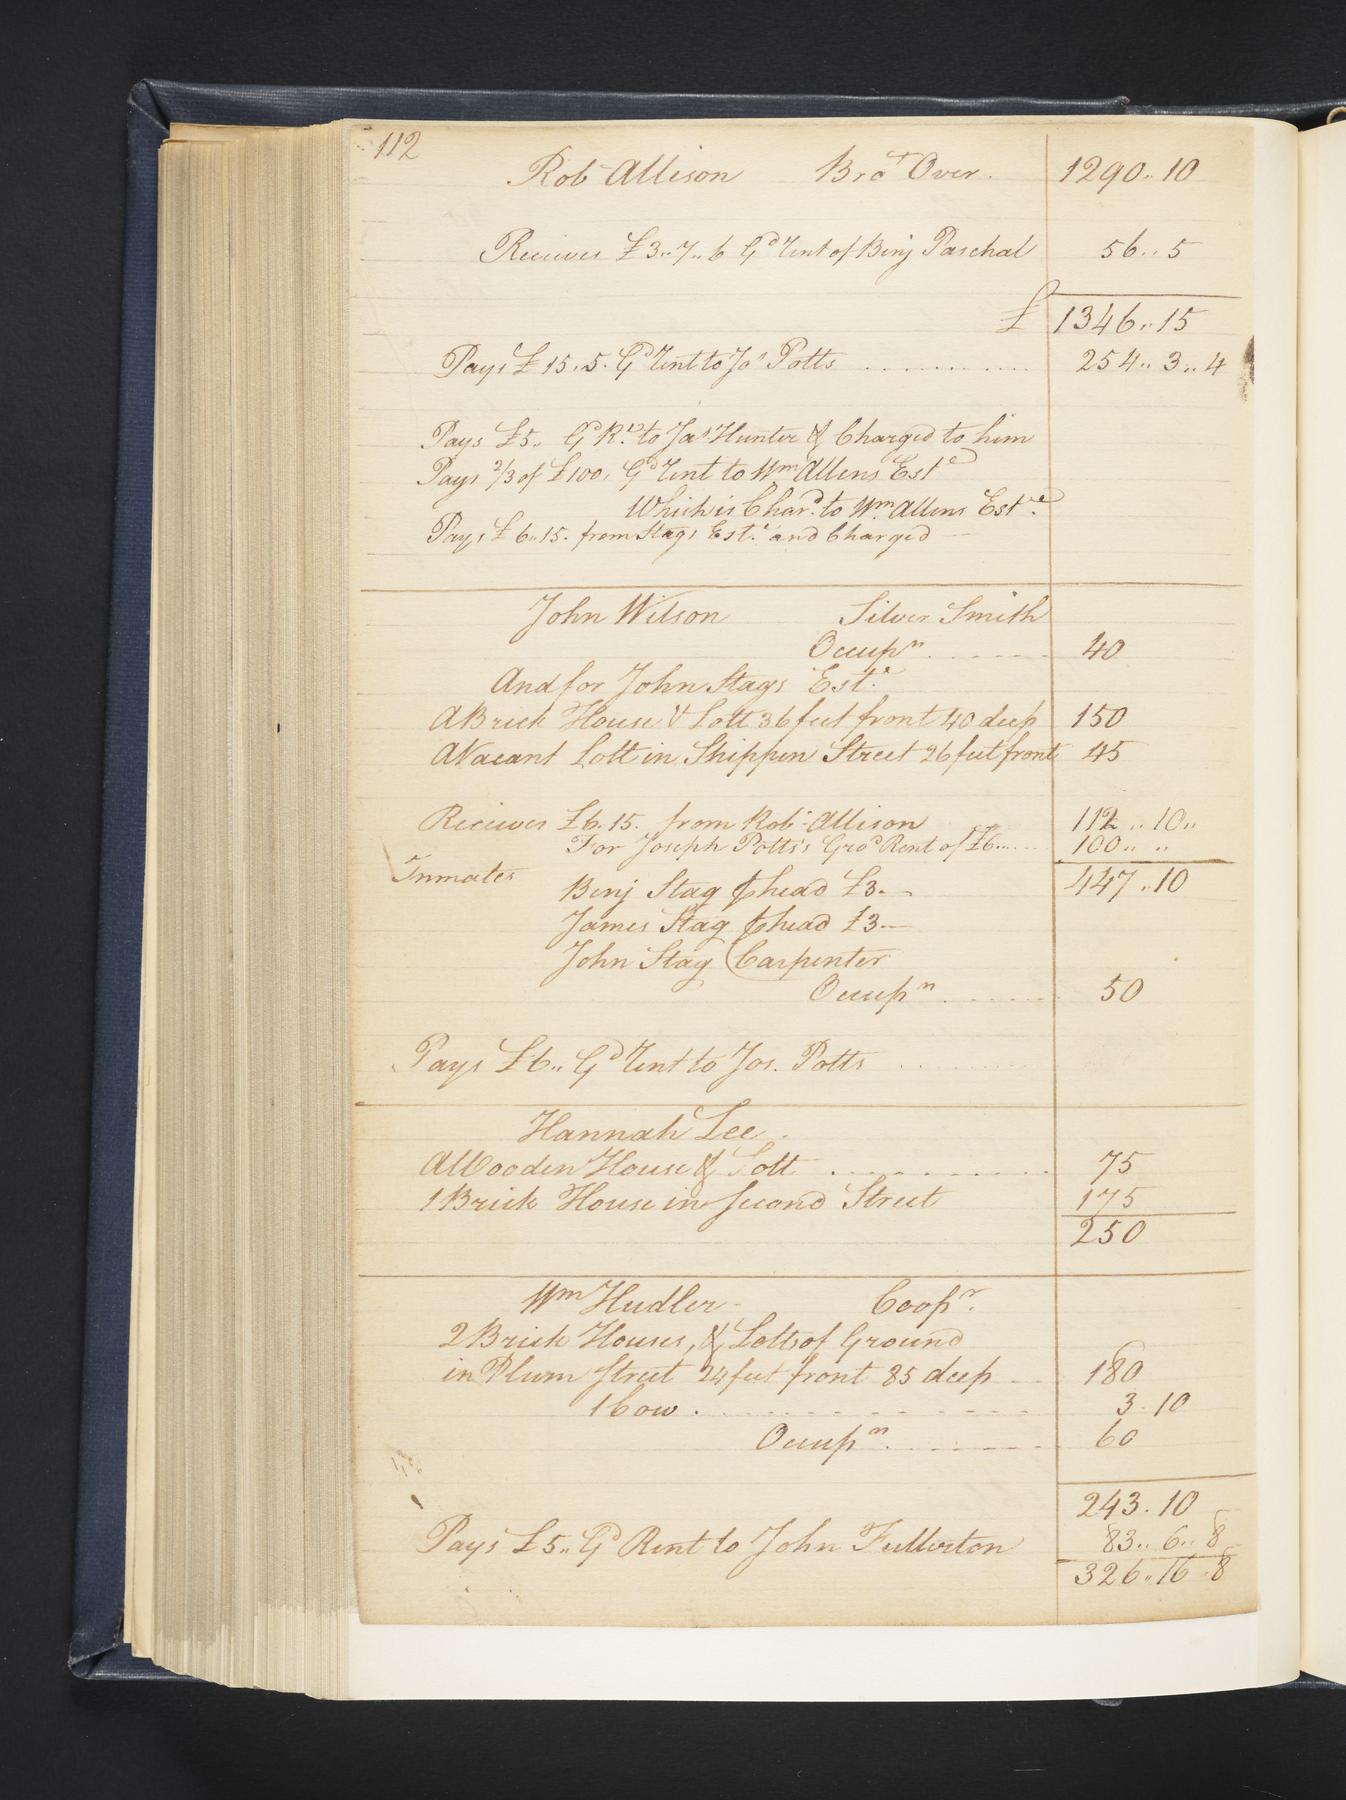 112
Rob Allison Bro.t Over. 1290.. 10
Receives £3.. 7.. 6 G.d Rent of Benj Paschal 56.. 5
£ 1346.. 15
Pays £15. 5. G.d Rent to Jo.s Potts ........... 254.. 3.. 4
Pays £5.. G.d R.t to Ja.s Hunter & Charged to him
Pays 2/3 of £100. G.d Rent to Wm Allens Est.e
Which is Char.d to Wm. Allens Est.e
Pays £6.. 15. from Stags Est.e and Charged —
John Wilson Silver Smith
Occup.n ....... 40
And for John Stags Est.e
A Brick House & Lott 36 feet front 40 deep 150
A Vacant Lott in Shippen Street 26 feet front 45
Receives £6. 15. from Rob.t Allison 112.. 10..
For Joseph Potts's Gro.d Rent of £6...... 100.. ..
Inmates
447.. 10
Benj Stag ⅌ head £3.-
James Stag ⅌ head £3.-
John Stag Carpenter
Occup.n ....... 50
Pays £6.. G.d Rent to Jos. Potts .......
Hannah Lee.
A Wooden House & Lott ........... 75
1 Brick House in Second Street 175
250
Wm Hudler - Coop.r
2 Brick Houses, & Lotts of Ground
in Plum Street 24 feet front 85 deep -- 180
1 Cow .............. 3. 10
Occup.n ....... 60
243. 10
Pays £5.. G.d Rent to John Fullerton 83.. 6.. 8
326.. 16. 8